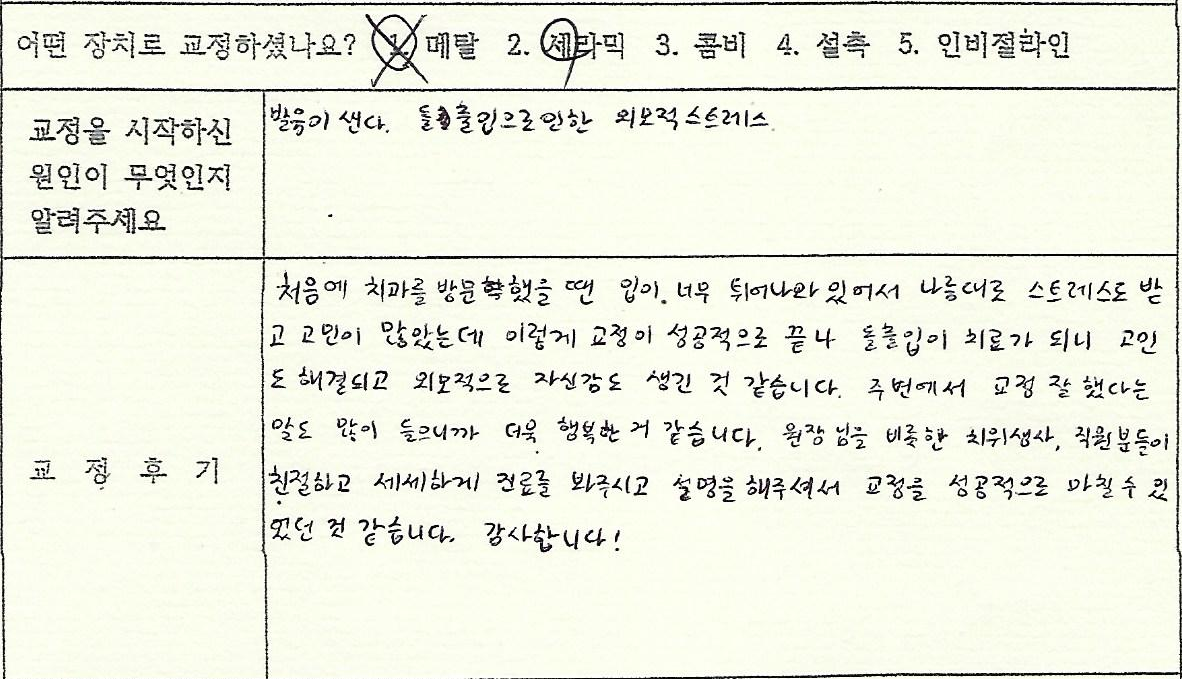 어떤 장치로 교정하셨나요? 1. 메탈 2. 세라믹 3. 콤비 4. 설측 5. 인비절라인
교정을 시작하신
원인이 무엇인지
알려주세요
발음이 샌다. 돌출입으로인한 외모적 스트레스
교 정 후 기
처음에 치과를 방문했을 땐 입이 너무 튀어나와 있어서 나름대로 스트레스도 받
고 고민이 많았는데 이렇게 교정이 성공적으로 끝나 돌출입이 치료가 되니 고민
도 해결되고 외모적으로 자신감도 생긴 것 같습니다. 주변에서 교정 잘 했다는
말도 많이 들으니까 더욱 행복한 거 같습니다. 원장님을 비롯한 치위생사, 직원분들이
친절하고 세세하게 진료를 봐주시고 설명을 해주셔서 교정을 성공적으로 마칠 수 있
었던 것 같습니다. 감사합니다!